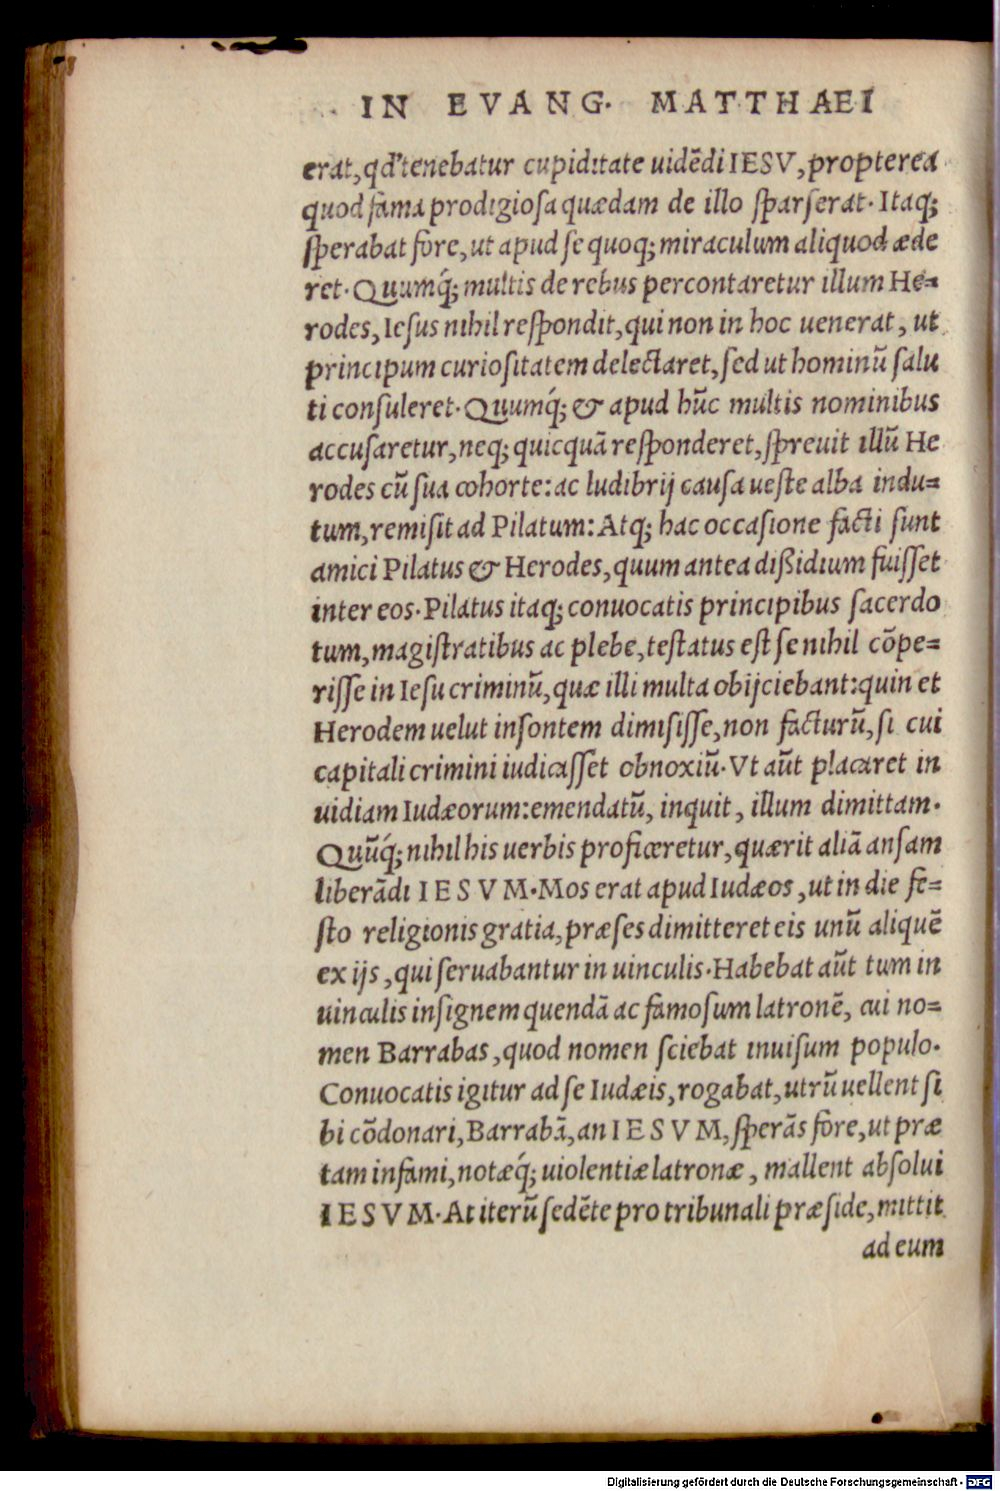 IN EVANG. MATTHAEI
erat, qd' tenebatur cupiditate uidēdi IESV, propterea
quod fama prodigiosa quædam de illo sparserat. Itaq;
sperabat fore, ut apud se quoq; miraculum aliquod æde
ret. Quumq́; multis de rebus percontaretur illum He=
rodes, Iesus nihil respondit, qui non in hoc uenerat, ut
principum curiositatem delectaret, sed ut hominū salu
ti consuleret. Quumq́; & apud hūc multis nominibus
accusaretur, neq; quicquā responderet, spreuit illū He
rodes cū sua cohorte: ac ludibrij causa ueste alba indu=
tum, remisit ad Pilatum: Atq; hac occasione facti sunt
amici Pilatus & Herodes, quum antea dißidium fuisset
inter eos. Pilatus itaq; conuocatis principibus sacerdo
tum, magistratibus ac plebe, testatus est se nihil cōpe=
risse in Iesu criminū, quæ illi multa obijciebant: quin et
Herodem uelut insontem dimisisse, non facturū, si cui
capitali crimini iudicasset obnoxiū. Vt aūt placaret in
uidiam Iudæorum: emendatū, inquit, illum dimittam.
Quūq́; nihil his uerbis proficeretur, quærit aliā ansam
liberādi IESVM. Mos erat apud Iudæos, ut in die fe=
sto religionis gratia, præses dimitteret eis unū aliquē
ex ijs, qui seruabantur in uinculis. Habebat aūt tum in
uinculis insignem quendā ac famosum latronē, cui no=
men Barrabas, quod nomen sciebat inuisum populo.
Conuocatis igitur ad se Iudæis, rogabat, utrū uellent si
bi cōdonari, Barrabā, an IESVM, sperās fore, ut præ
tam infami, notæq́; uiolentiæ latronæ, mallent absolui
IESVM. At iterū sedēte pro tribunali præside, mittit
ad eum
Digitalisierung gefördert durch die Deutsche Forschungsgemeinschaft - DFG